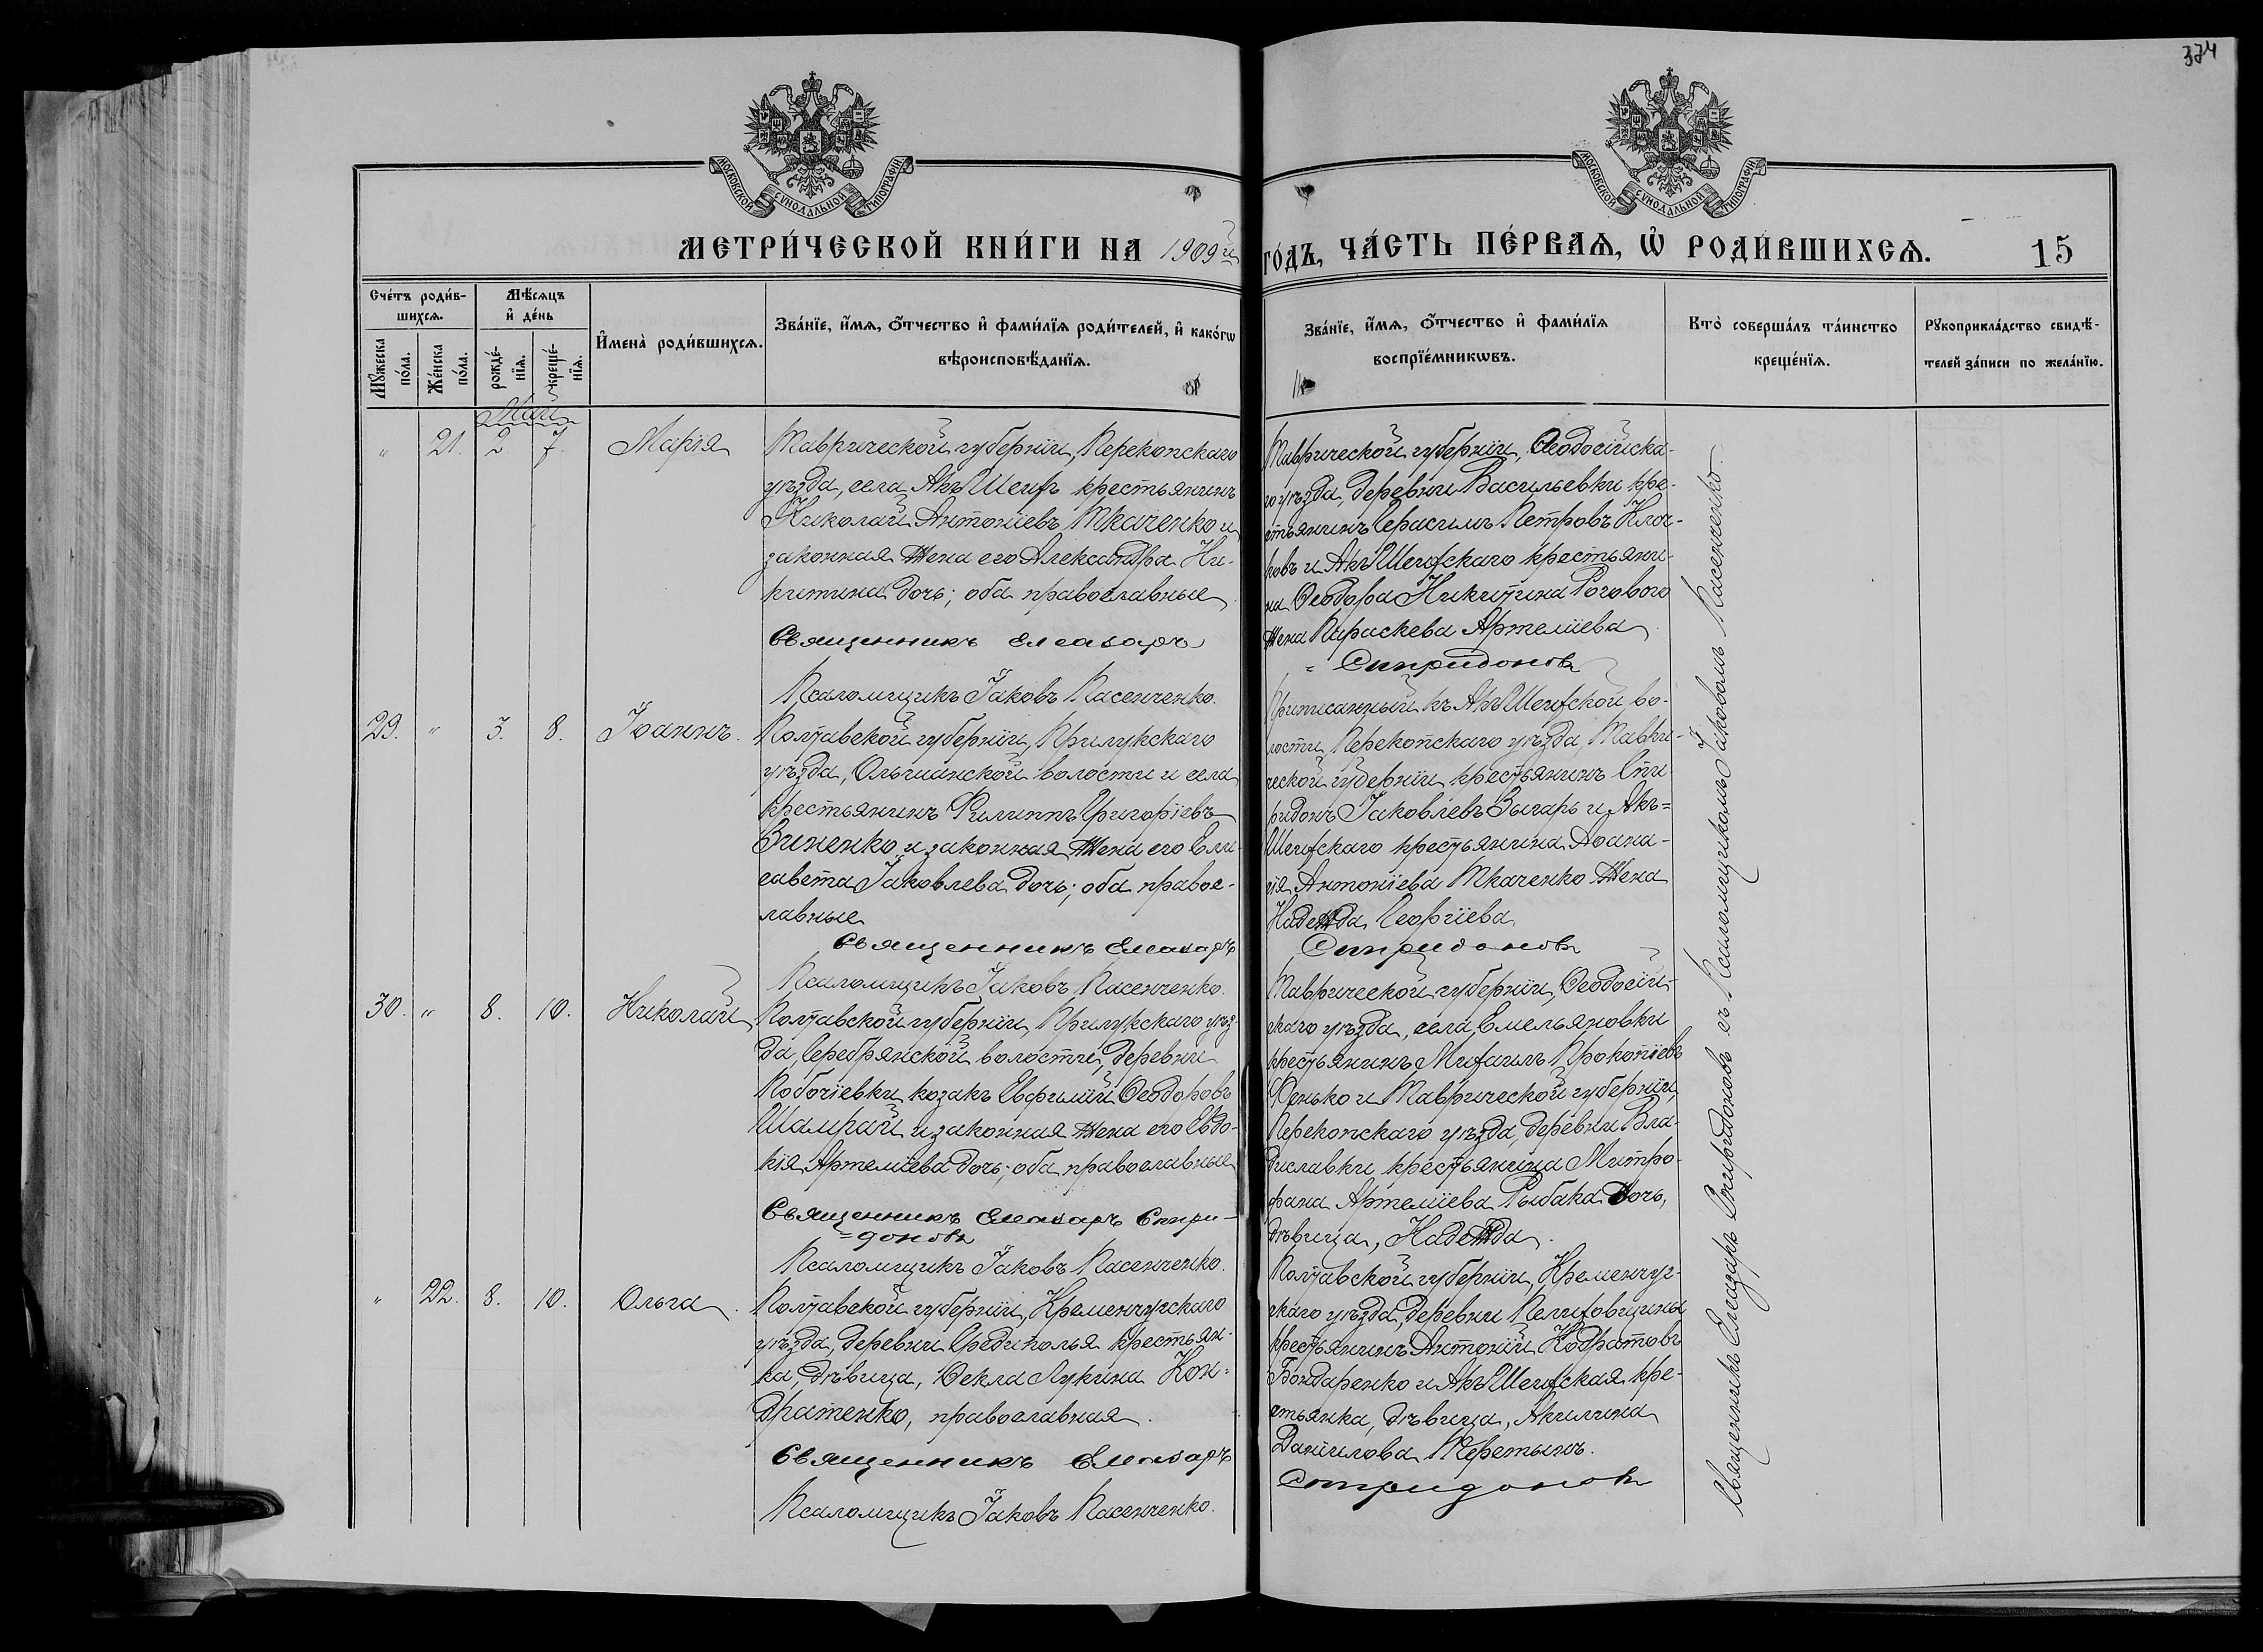 374
МОСКОВСКОЙ СУНОДАЛЬНОЙ ТИПОГРАФІИ
МОСКОВСКОЙ СУНОДАЛЬНОЙ ТИПОГРАФІИ
МЕТРИ́ЧЕСКОЙ КНИ́ГИ НА 1909й
ГО́ДЪ, ЧА́СТЬ ПЕ́РВАѦ, Ѡ҆ РОДИ́ВШИХСѦ. 15
Сче́тъ роди́в-
шихсѧ.
Мꙋ́жеска
по́ла.
Же́нска
по́ла.
Мѣ́сѧцъ
и҆ де́нь
рожде́-
нїѧ.
креще́-
нїѧ.
И҆мена̀ роди́вшихсѧ.
Зва́нїе, и҆́мѧ, ѻ҆́тчество и҆ фами́лїѧ роди́телей, и҆ како́гѡ
вѣроисповѣ́данїѧ.
Зва́нїе, и҆́мѧ, ѻ҆́тчество и҆ фами́лїѧ
воспрїе́мникѡвъ.
Кто̀ соверша́лъ та́инство
креще́нїѧ.
Рꙋкоприкла́дство свидѣ́-
телей за́писи по жела́нїю.
Май
" 21. 2. 7. Марія
Таврической губерніи, Перекопскаго
уѣзда, села Акъ Шеихъ крестьянинъ
Николай Антоніевъ Ткаченко и
законная жена его Александра Ни-
китина дочь; оба православные
Священникъ Елеазаръ
Псаломщикъ Іаковъ Пасенченко.
Таврической губерніи, Ѳеодосійска-
го уѣзда, деревни Васильевки кре-
стьянинъ Герасимъ Петровъ Клоч-
ковъ и Акъ Шеихскаго крестьяни-
на Ѳеодора Никитина Рогового
жена Параскева Артеміева
= Спиридоновъ
29. " 3. 8. Іоаннъ.
Полтавской губерніи, Прилукскаго
уѣзда, Ольшанской волости и села
крестьянинъ Филиппъ Григоріевъ
Зиненко и законная жена его Ели-
савета Іаковлева дочь; оба правос-
лавные
Священникъ Елеазаръ
Псаломщикъ Іаковъ Пасенченко.
Приписанный къ Акъ Шеихской во-
лости, Перекопскаго уѣзда, Таври-
ческой губерніи крестьянинъ Спи-
ридонъ Іаковлевъ Зычарь и Акъ=
Шеихскаго крестьянина Аѳана-
сія Антоніева Ткаченко жена
Надежда Георгіева
Спиридоновъ
30. " 8. 10. Николай
Полтавской губерніи, Прилукскаго уѣз-
да, Серебрянской волости, деревни
козакъ Евфимій Ѳеодоровъ
Шамрай и законная жена его Евдо-
кія Артеміева дочь; оба православные
Священникъ Елеазаръ Спири-
=доновъ
Псаломщикъ Іаковъ Пасенченко.
Таврической губерніи, Ѳеодосій-
скаго уѣзда, села Емельяновки
крестьянинъ Михаилъ Прокопіевъ
Фенько и Таврической губерніи,
Перекопскаго уѣзда, деревни Вла-
диславки крестьянина Митро-
фана Артеміева Рыбака дочь,
дѣвица, Надежда.
" 22. 8. 10. Ольга.
Полтавской губерніи, Кременчугскаго
уѣзда, деревни Средиполья крестьян-
ка, дѣвица, Ѳекла Лукина Кон-
дратенко, православная.
Священникъ Елеазаръ
Псаломщикъ Іаковъ Пасенченко.
Полтавской губерніи, Кременчуг-
скаго уѣзда, деревни Пелиховщины
крестьянинъ Антоній Кодратовъ
Бондаренко и Акъ Шеихская кре-
стьянка, дѣвица, Акилина
Даніилова
Спиридоновъ
Священникъ Елеазаръ Спиридоновъ съ Псаломщикомъ Іаковомъ Пасенченко